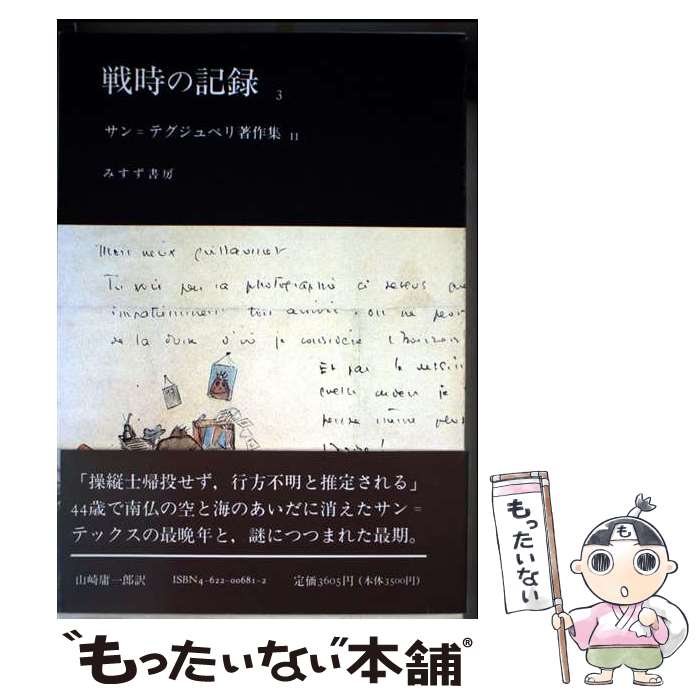 戦時の記録 3
サン=テグジュペリ著作集 11
みすず書房
Mon vieux Guillaumet
Tu vois par la photographie ci dessus que
impatiemment ton arrivée. on ne
de la dune d'où je considère l'horizon
Et par le dessin
「操縦士帰投せず，行方不明と推定される」
44歳で南仏の空と海のあいだに消えたサン=
テックスの最晩年と，謎につつまれた最期。
山崎庸一郎訳 ISBN4-622-00681-2 定価3605円（本体3500円）
もったいない
"もったいない本舗®"